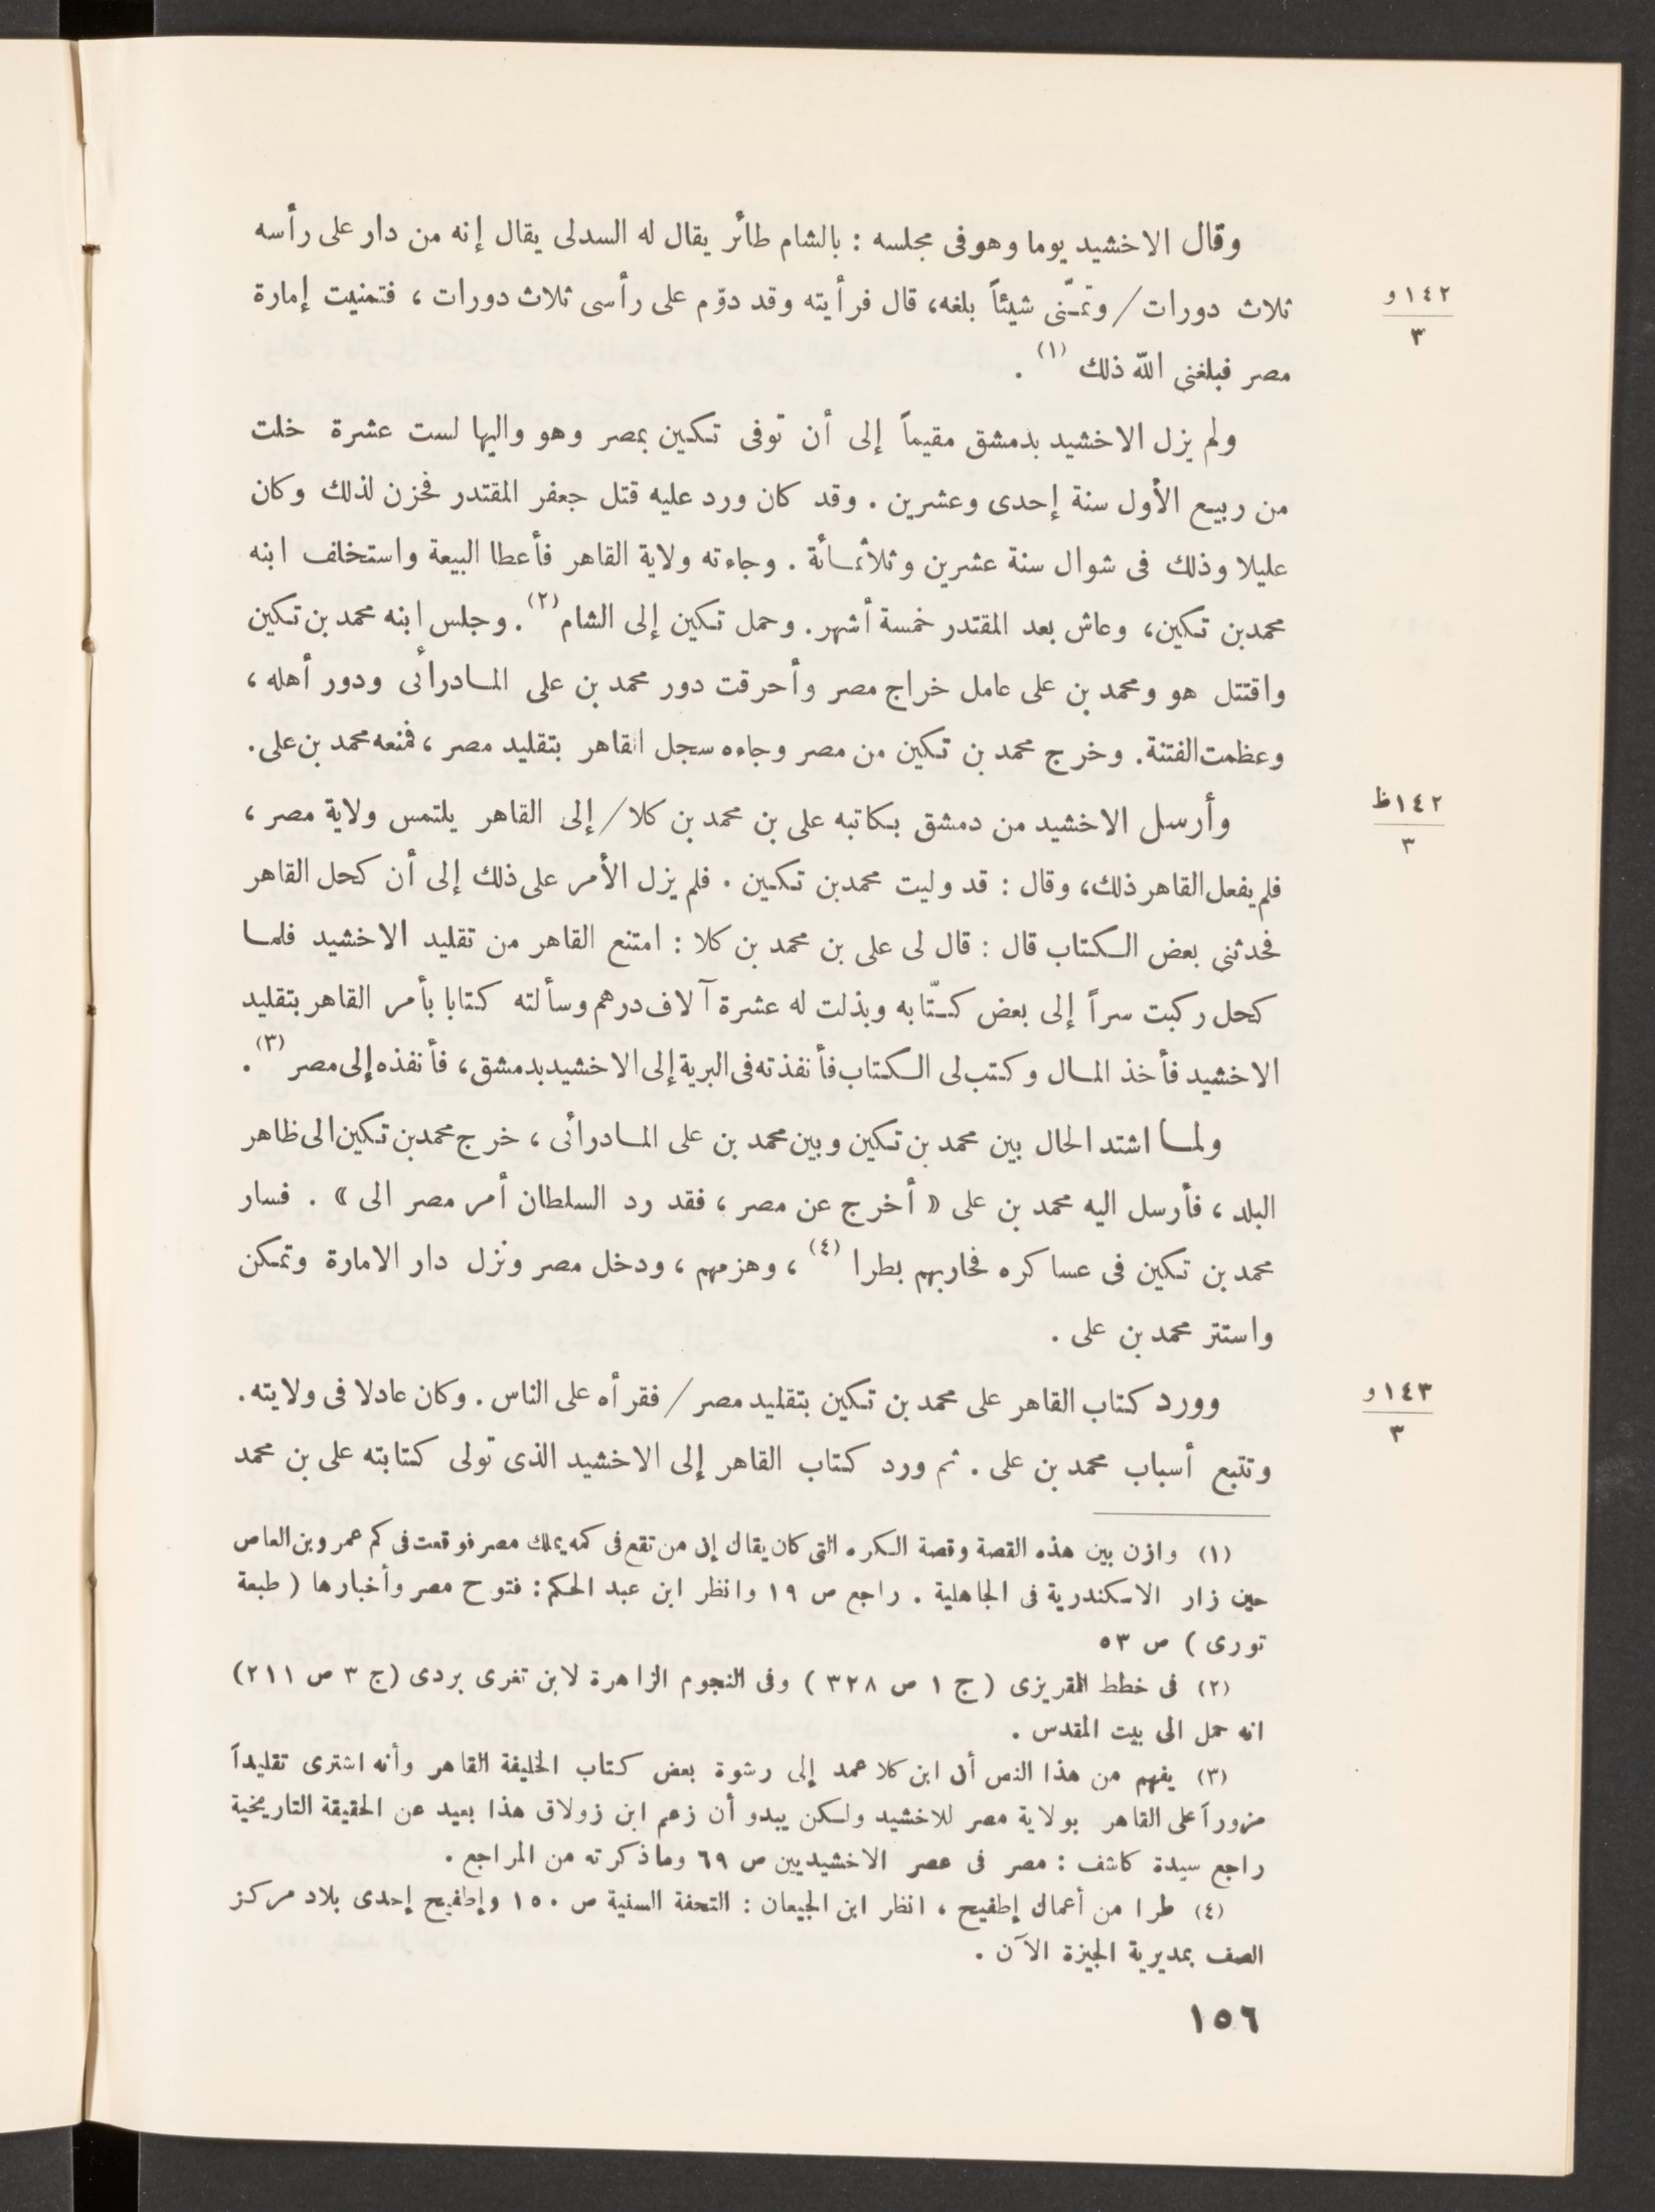 وقال الاخشيد يوما وهو فى مجلسه : بالشام طائر يقال له السدلى يقال إنه من دار على رأسه
ثلاث دورات / وتمـنّى شيئاً بلغه، قال فرأيته وقد دوّم على رأسى ثلاث دورات ، فتمنيت إمارة
١٤٢و
٣
مصر فبلغنى اللّه ذلك (١) .
ولم يزل الاخشيد بدمشق مقيماً إلى أن توفى تكين بمصر وهو واليها لست عشرة خلت
من ربيع الأول سنة إحدى وعشرين . وقد كان ورد عليه قتل جعفر المقتدر فحزن لذلك وكان
عليلا وذلك فى شوال سنة عشرين وثلاثمائة . وجاءته ولاية القاهر فأعطا البيعة واستخلف ابنه
محمد بن تكين، وعاش بعد المقتدر خمسة أشهر. وحمل تكين إلى الشام (٢) . وجلس ابنه محمد بن تكين
واقتتل هو ومحمد بن على عامل خراج مصر وأحرقت دور محمد بن على المادرائى ودور أهله ،
وعظمت الفتنة. وخرج محمد بن تكين من مصر وجاءه سجل القاهر بتقليد مصر ، فمنعه محمد بن على.
وأرسل الاخشيد من دمشق بكاتبه على بن محمد بن كلا / إلى القاهر يلتمس ولاية مصر ،
١٤٢ظ
٣
فلم يفعل القاهر ذلك، وقال : قد وليت محمد بن تكين . فلم يزل الأمر على ذلك إلى أن كحل القاهر
فحدثنى بعض الكتاب قال : قال لى على بن محمد بن كلا : امتنع القاهر من تقليد الاخشيد فلما
كحل ركبت سراً إلى بعض كتّابه وبذلت له عشرة آلاف درهم وسألته كتابا بأمر القاهر بتقليد
الاخشيد فأخذ المال وكتب لى الكتاب فأنفذته فى البرية إلى الاخشيد بدمشق، فأنفذه إلى مصر (٣) .
ولما اشتد الحال بين محمد بن تكين وبين محمد بن على المادرائى ، خرج محمد بن تكين الى ظاهر
البلد ، فأرسل اليه محمد بن على « أخرج عن مصر ، فقد رد السلطان أمر مصر الى » . فسار
محمد بن تكين فى عساكره فحاربهم بطرا (٤) ، وهزمهم ، ودخل مصر ونزل دار الامارة وتمكن
واستتر محمد بن على .
وورد كتاب القاهر على محمد بن تكين بتقليد مصر / فقرأه على الناس . وكان عادلا فى ولايته.
١٤٣و
٣
وتتبع أسباب محمد بن على . ثم ورد كتاب القاهر إلى الاخشيد الذى تولى كتابته على بن محمد
(١) وازن بين هذه القصة وقصة الكره التى كان يقال إن من تقع فى كمه يملك مصر فوقعت فى كم عمرو بن العاص
حين زار الاسكندرية فى الجاهلية . راجع ص ١٩ وانظر ابن عبد الحكم : فتوح مصر وأخبارها ( طبعة
تورى ) ص ٥٣
(٢) فى خطط المقريزى ( ج ١ ص ٣٢٨ ) وفى النجوم الزاهرة لابن تغرى بردى (ج ٣ ص ٢١١)
انه حمل الى بيت المقدس .
(٣) يفهم من هذا النص أن ابن كلا عمد إلى رشوة بعض كتاب الخليفة القاهر وأنه اشترى تقليداً
مزوراً على القاهر بولاية مصر للاخشيد ولكن يبدو أن زعم ابن زولاق هذا بعيد عن الحقيقة التاريخية
راجع سيدة كاشف : مصر فى عصر الاخشيديين ص ٦٩ وما ذكرته من المراجع .
(٤) طرا من أعمال إطفيح ، انظر ابن الجيعان : التحفة السنية ص ١٥٠ وإطفيح إحدى بلاد مركز
الصف بمديرية الجيزة الآن .
١٥٦